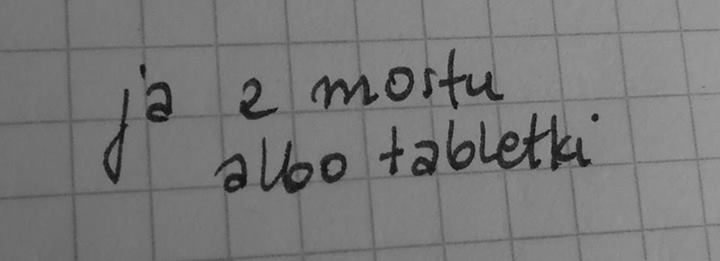 ja z mostu
albo tabletki